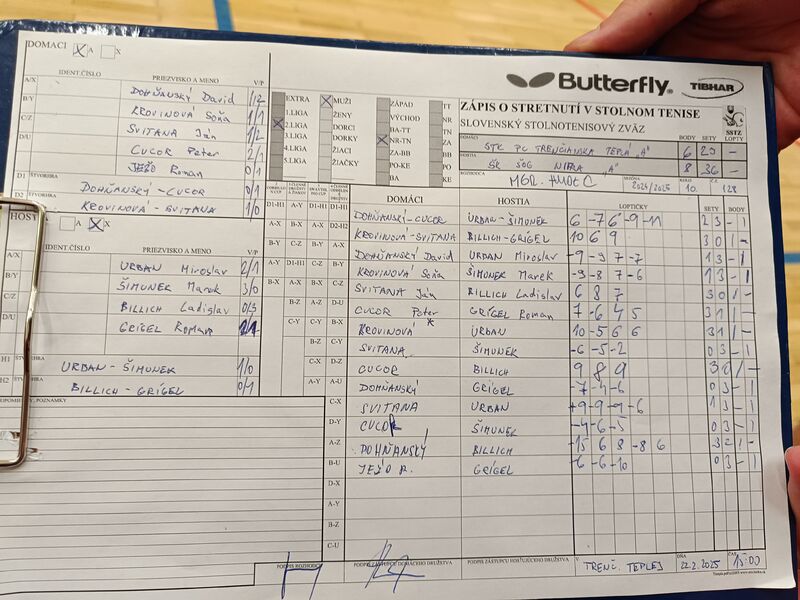 DOMACI X A X
Butterfly TIBHAR
IDENT.ČÍSLO PRIEZVISKO A MENO V/P
A/X DOHŇANSKÝ David 1/2
B/Y KROVINOVÁ Soňa 1/1
C/Z SVITANA Ján 1/2
D/U CUCOR Peter 2/1
JEŽO Roman 0/1
D1 ŠTVORHRA DOHŇANSKÝ - CUCOR 0/1
D2 KROVINOVÁ - SVITANA 1/0
EXTRA X MUŽI ZÁPAD TT
1.LIGA ŽENY VÝCHOD NR
X 2.LIGA DORCI BA-TT TN
3.LIGA DORKY X NR-TN PO
4.LIGA ŽIACI ZA-BB KE
5.LIGA ŽIAČKY PO-KE ZA
BA BB
ZÁPIS O STRETNUTÍ V STOLNOM TENISE
SLOVENSKÝ STOLNOTENISOVÝ ZVÄZ
SSTZ
DOMÁCI BODY SETY LOPTY
STK PC TRENČIANSKA TEPLÁ "A" 6 20 -
HOSTIA ŠK ŠOG NITRA "A" 8 36 -
ROZHODCA MGR. SEZÓNA 2024/2025 KOLO 10. Č. 128
HOSTIA A X X
IDENT.ČÍSLO PRIEZVISKO A MENO V/P
A/X URBAN Miroslav 2/1
B/Y ŠIMUNEK Marek 3/0
C/Z BILLICH Ladislav 0/3
D/U GRÍGEL Roman
H1 ŠTVORHRA URBAN - ŠIMUNEK 1/0
H2 BILLICH - GRÍGEL 0/1
PRIPOMIENKY, POZNÁMKY
DOMÁCI HOSTIA LOPTIČKY SETY BODY
D1-H1 DOHŇANSKÝ-CUCOR URBAN-ŠIMUNEK 6 -7 6 -9 -11 2 3 - 1
D2-H2 KROVINOVÁ-SVITANA BILLICH-GRÍGEL 10 6 9 3 0 1 -
A-X DOHŇANSKÝ David URBAN Miroslav -9 -9 7 -7 1 3 - 1
B-Y KROVINOVÁ Soňa ŠIMUNEK Marek -9 -8 7 -6 1 3 - 1
C-Z SVITANA Ján BILLICH Ladislav 6 8 7 3 0 1 -
D-U CUCOR Peter * GRÍGEL Roman 7 -6 4 5 3 1 1 -
B-X KROVINOVÁ URBAN 10 -5 6 6 3 1 1 -
C-Y SVITANA ŠIMUNEK -6 -5 -2 0 3 - 1
D-Z CUCOR BILLICH 9 8 9 3 0 1 -
A-U DOHŇANSKÝ GRÍGEL -7 -4 -6 0 3 - 1
C-X SVITANA URBAN -9 -9 -6 1 3 - 1
D-Y CUCOR ŠIMUNEK -4 -6 -5 0 3 - 1
A-Z DOHŇANSKÝ BILLICH -15 6 8 -8 6 3 2 1 -
B-U JEŽO R. GRÍGEL -6 -6 -10 0 3 - 1
D-X
A-Y
B-Z
C-U
PODPIS ROZHODCU PODPIS ZÁSTUPCU DOMÁCEHO DRUŽSTVA PODPIS ZÁSTUPCU HOSŤUJÚCEHO DRUŽSTVA V TRENČ. TEPLEJ DŇA 22.2.2025 ČAS 15:00